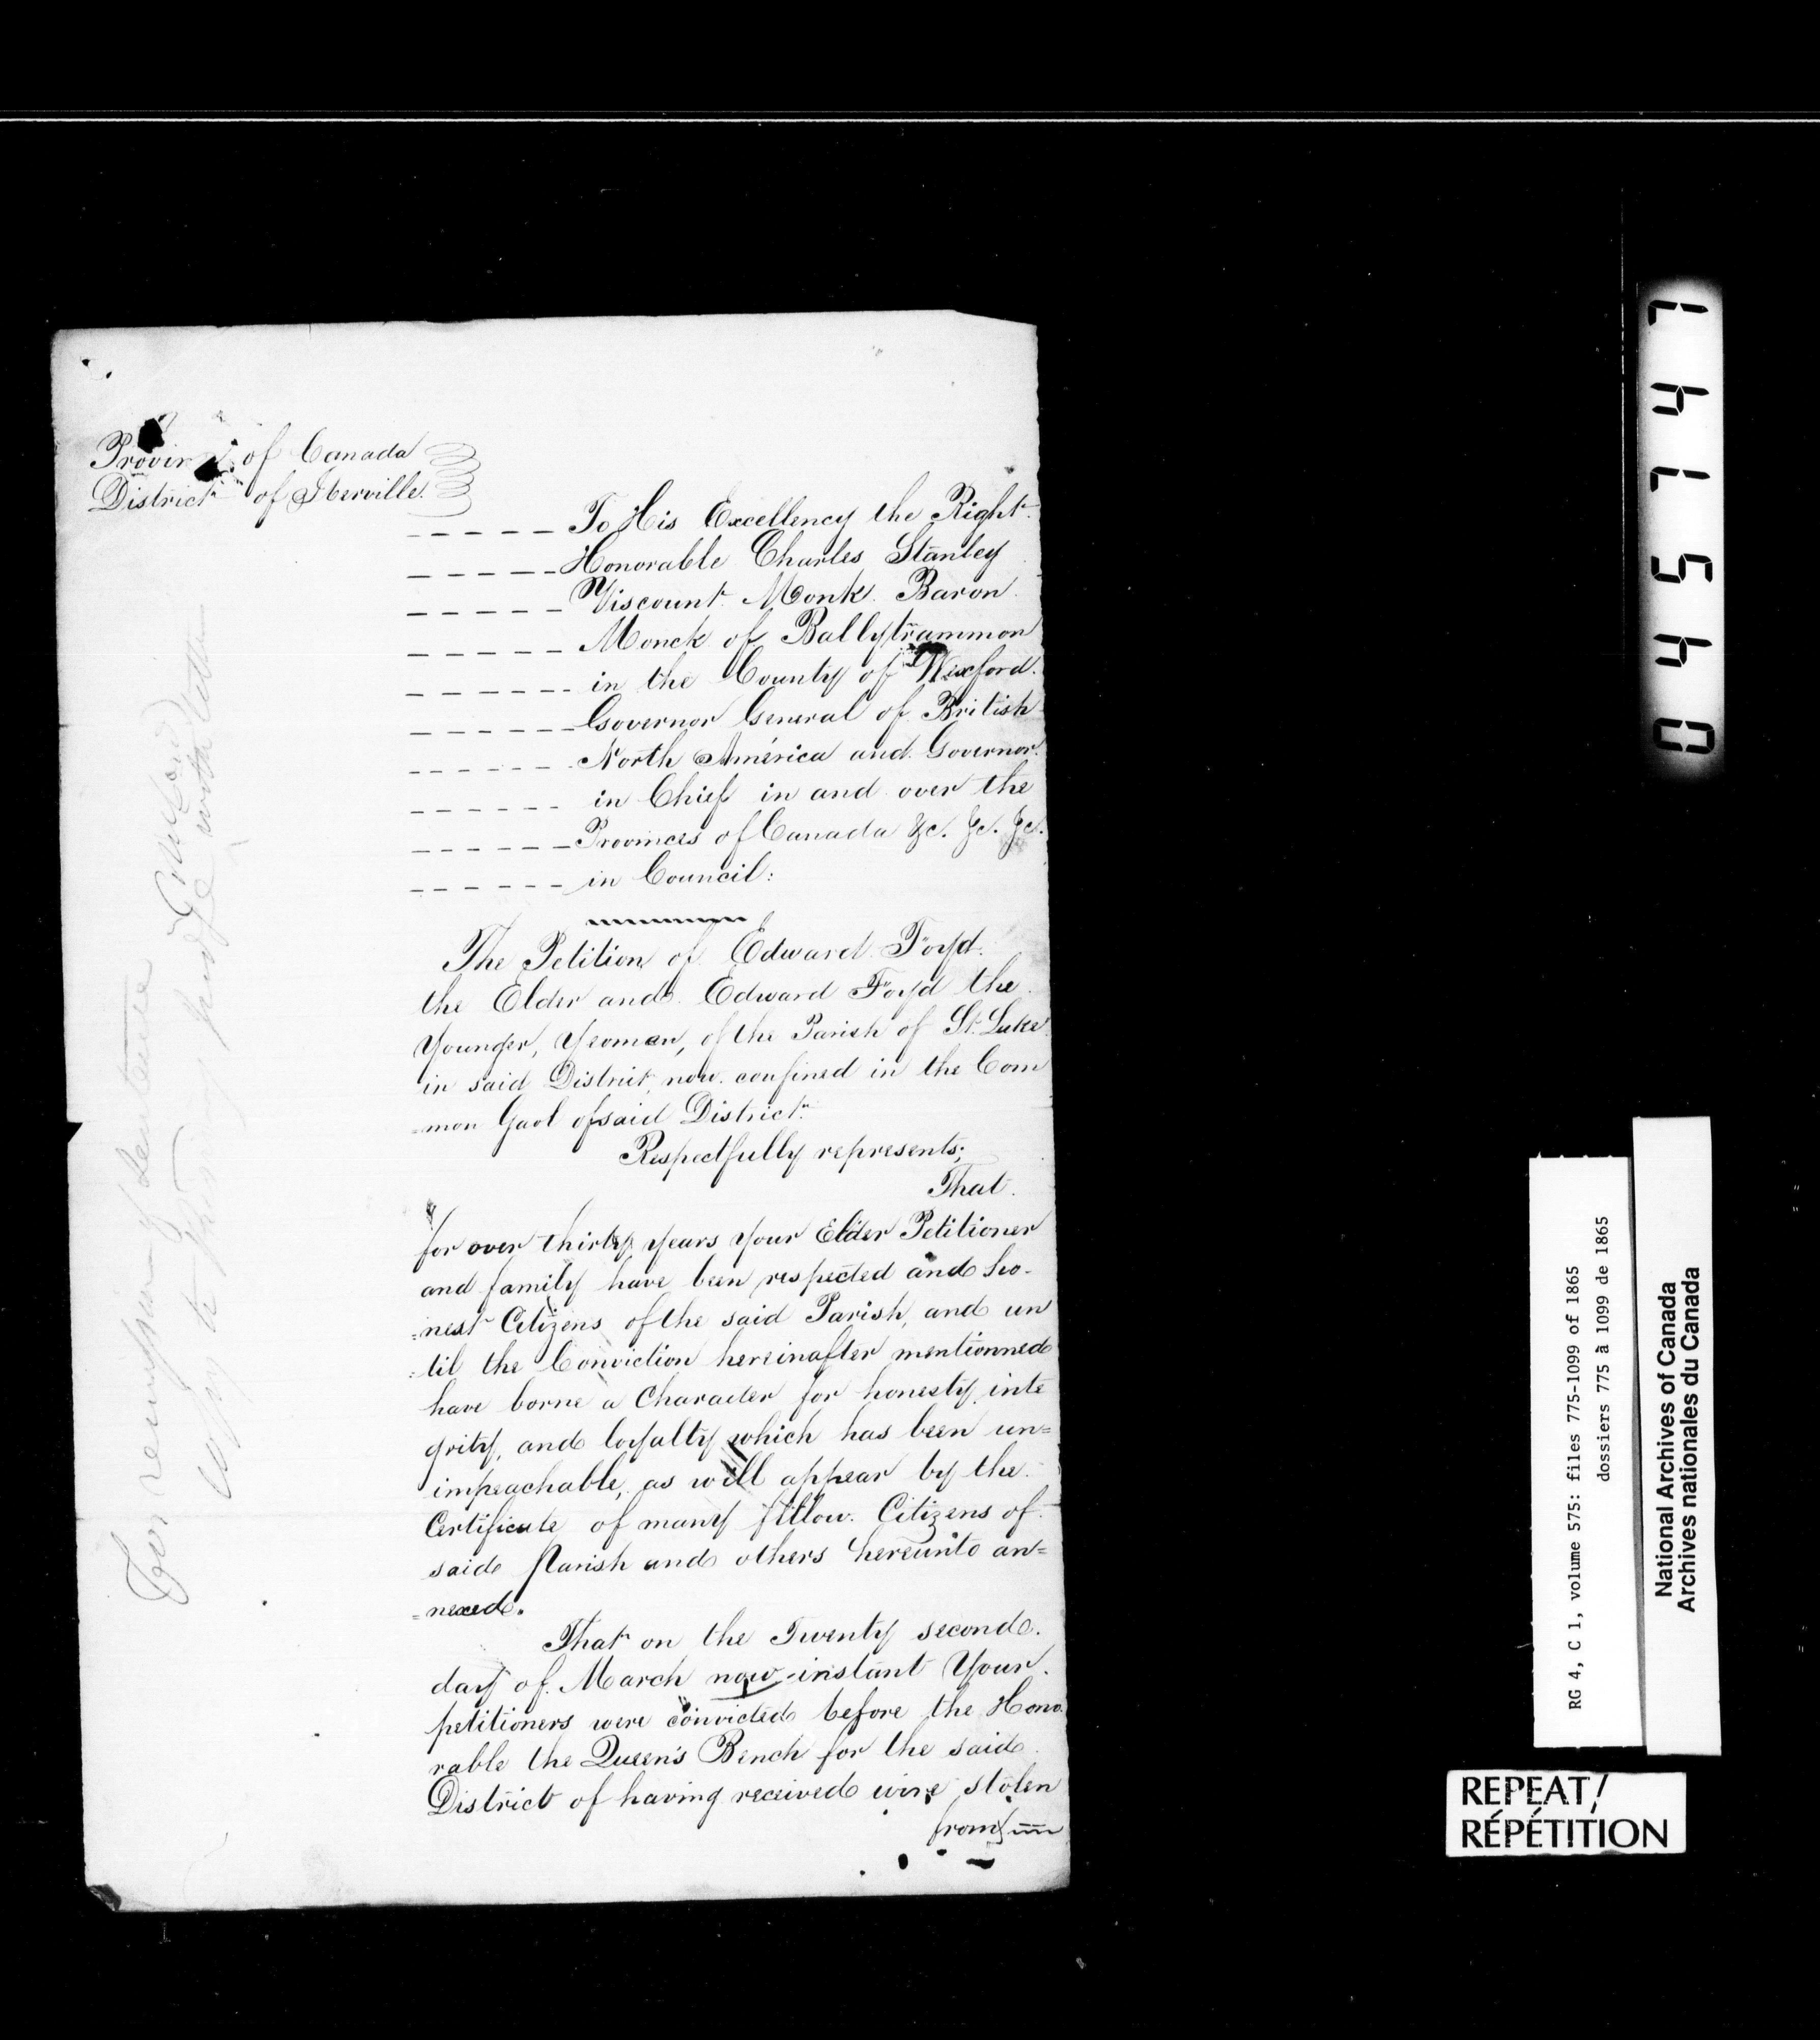 Province of Canada
District of Iberville.
To His Excellency the Right
Honorable Charles Stanley
Viscount Monk Baron
Monck of Ballytrammon
in the County of Wexford.
Governor General of British
North América and Governor
in Chief in and over the
Provinces of Canada &c. &c. &c.
in Council:
The Petition of Edward Foyd
the Elder and Edward Foyd the
Younger, Yeomen, of the Parish of St. Luke
in said District, now confined in the Com
=mon Gaol of said District.
Respectfully represents;
That
for over thirty years your Elder Petitioner
and family have been respected and ho-
=nest Citizens of the said Parish, and un
=til the Conviction hereinafter mentionned
have borne a Character for honesty, inte
grity, and loyalty which has been un=
impeachable, as will appear by the
Certificate of many fellow Citizens of
said Parish and others hereunto an=
=nexed.
That on the Twenty second
day of March now instant Your
petitioners were convicted before the Hono
rable the Queen's Bench for the said
District of having received wire stolen
from
For remission of Sentence
04541471
RG 4, C 1, volume 575: files 775-1099 of 1865
dossiers 775 à 1099 de 1865
National Archives of Canada
Archives nationales du Canada
REPEAT/
RÉPÉTITION